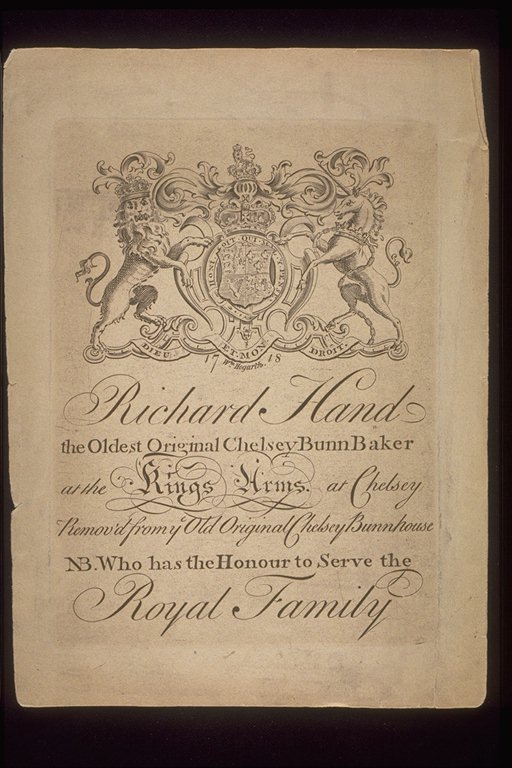 HONI SOIT QUI MAL Y PENSE
DIEU ET MON DROIT
17 Wm Hogarth. 18
Richard Hand
the Oldest Original Chelsey Bunn Baker
at the Kings Arms. at Chelsey
Remov'd from ye Old Original Chelsey Bunnhouse
NB. Who has the Honour to Serve the
Royal Family